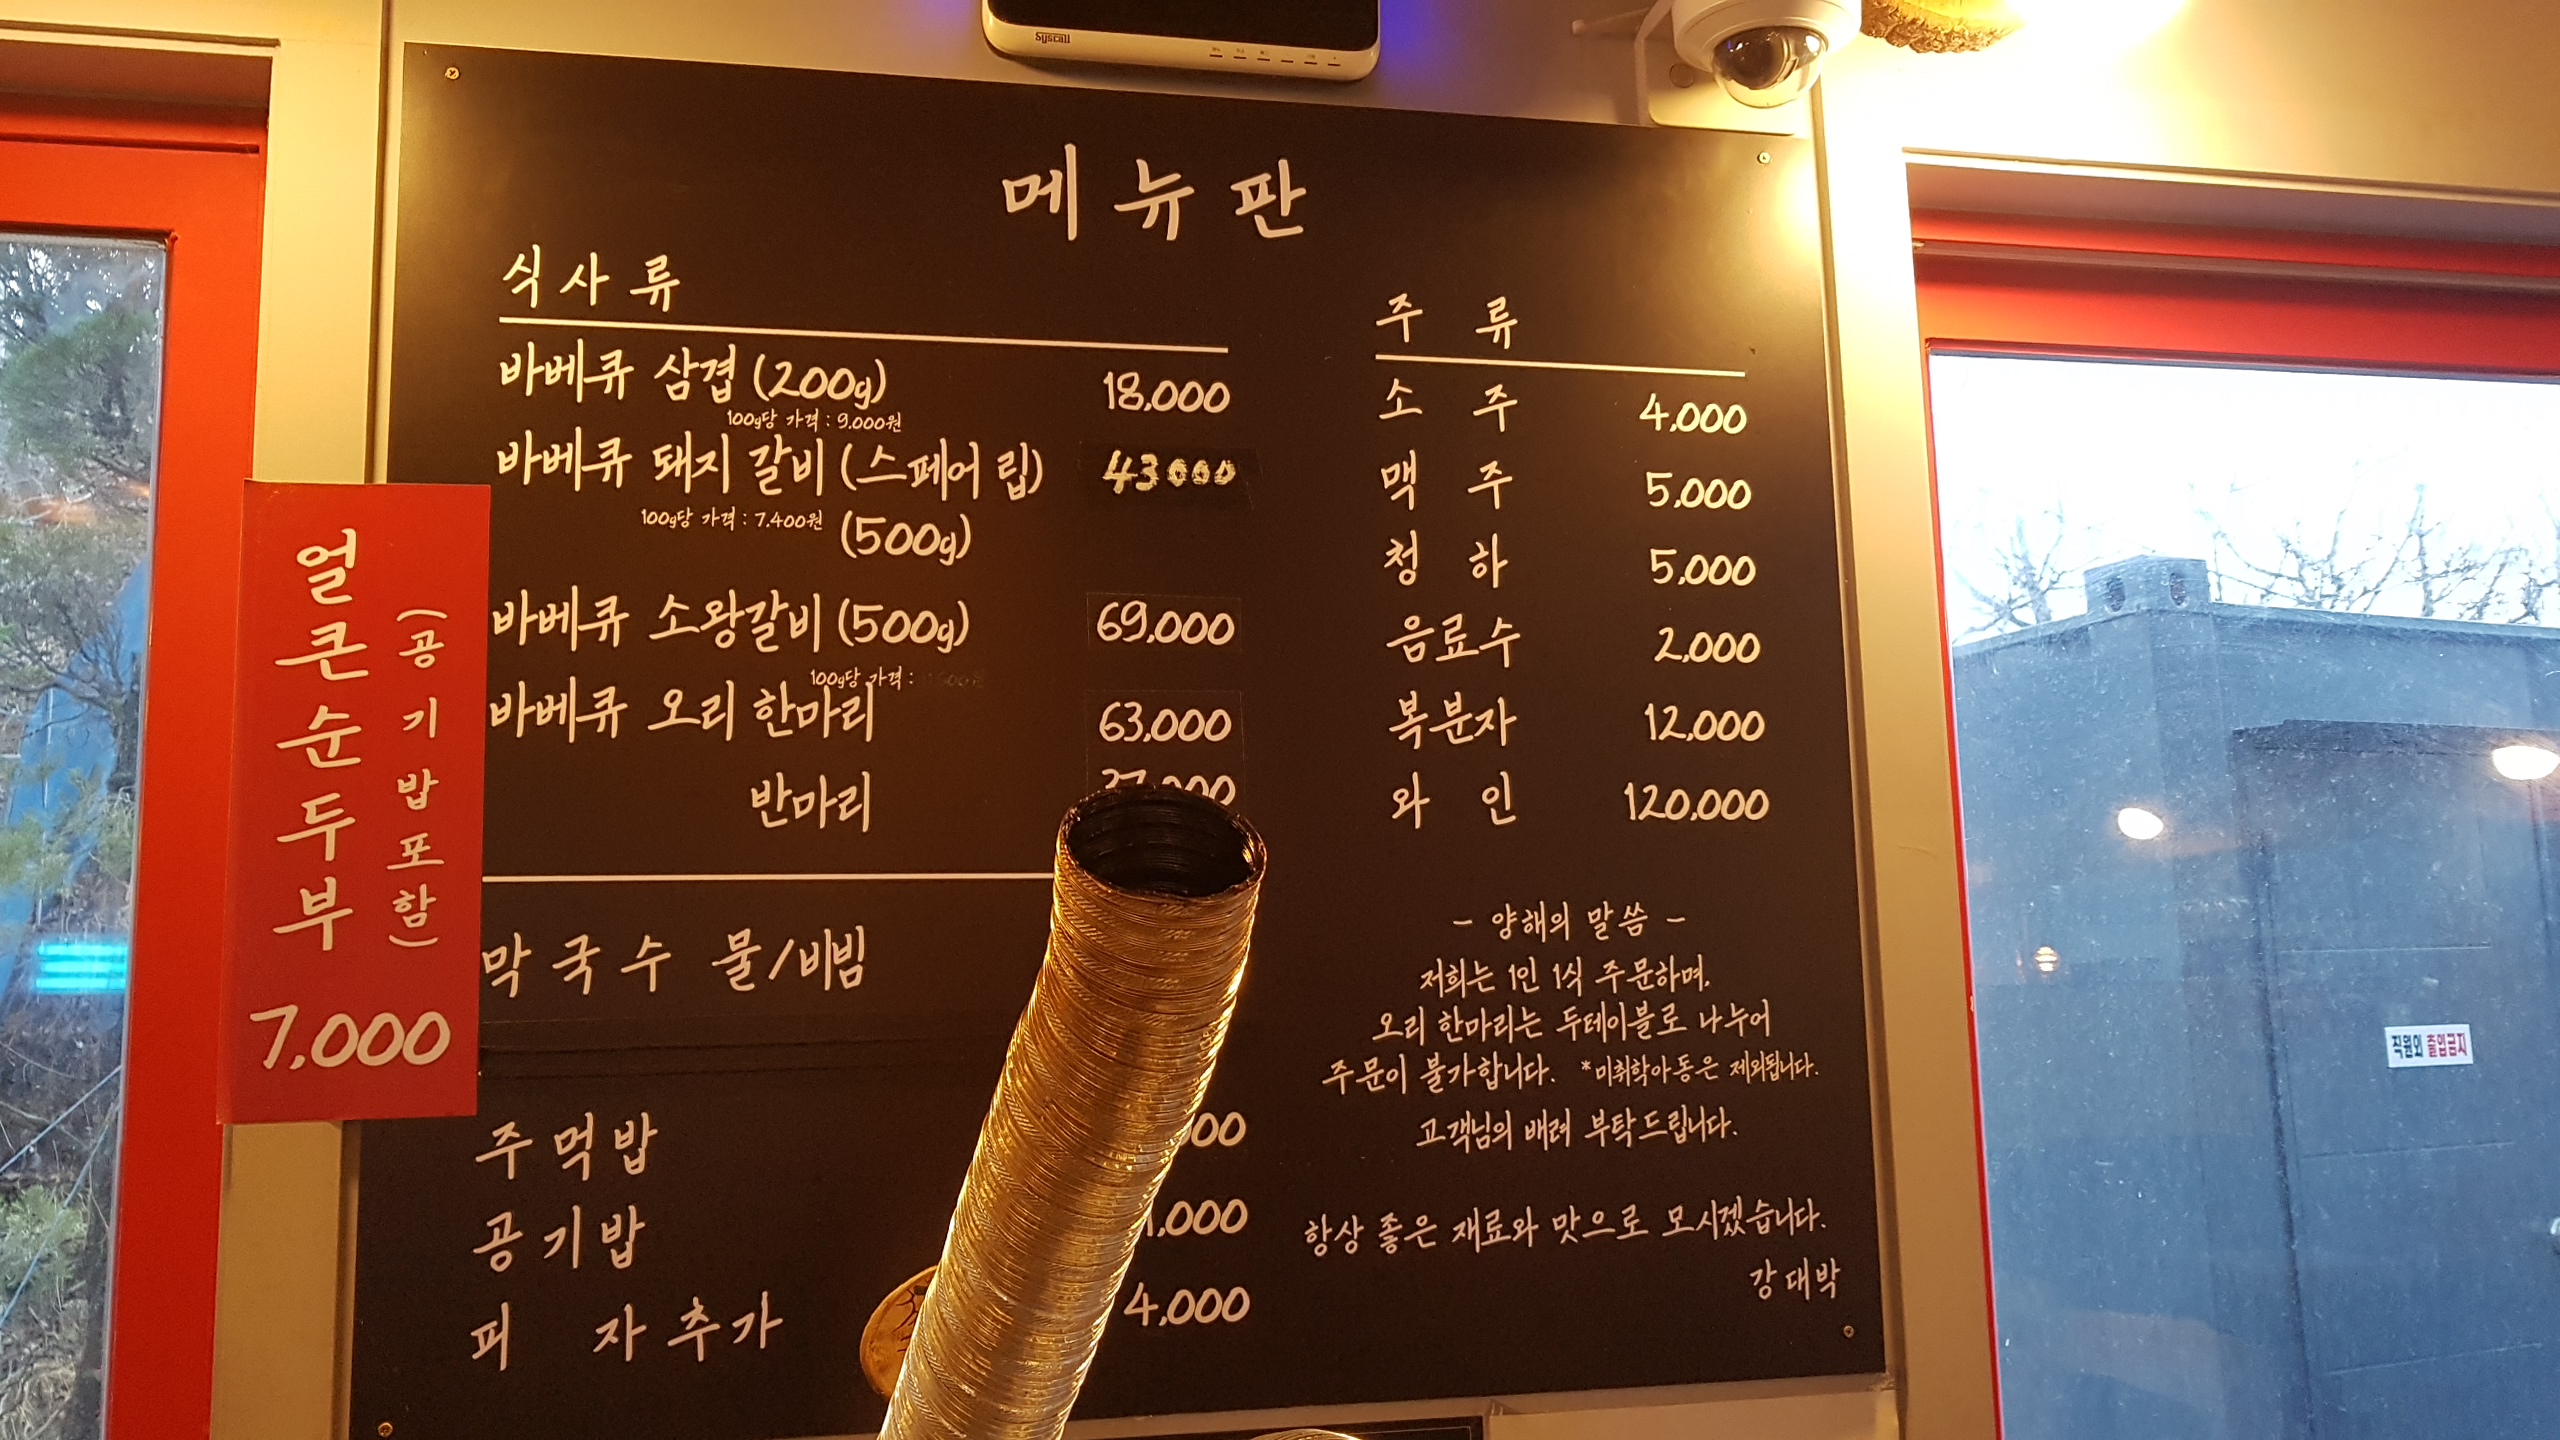 Syscall
메뉴판
식사류
바베큐 삼겹 (200g) 18,000
100g당 가격 : 9,000원
바베큐 돼지 갈비 (스페어 립) 43000
100g당 가격 : 7,400원 (500g)
바베큐 소왕갈비 (500g) 69,000
100g당 가격 :
바베큐 오리 한마리 63,000
반마리
막국수 물/비빔
주먹밥
공기밥 1,000
피 자추가 4,000
주 류
소 주 4,000
맥 주 5,000
청 하 5,000
음료수 2,000
복분자 12,000
와 인 120,000
- 양해의 말씀 -
저희는 1인 1식 주문하며,
오리 한마리는 두테이블로 나누어
주문이 불가합니다. *미취학아동은 제외됩니다.
고객님의 배려 부탁드립니다.
항상 좋은 재료와 맛으로 모시겠습니다.
강대박
얼큰순두부
(공기밥포함)
7,000
직원외 출입금지